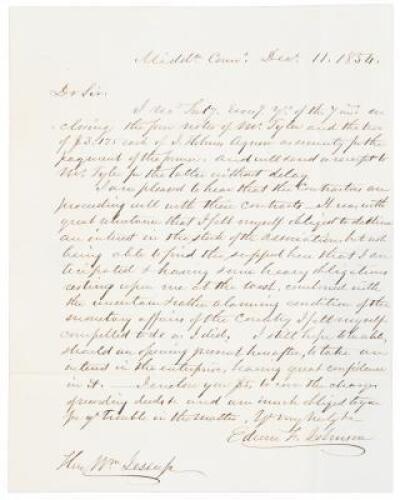 Middtn Conn. Decr. 11. 1854.
Dr Sir.
I recd. yrs of the 7 inst en
closing the four notes of Mr. Tyler and the two
of $3.175 each of J. Holmes Agnew as security for the
payment of the same. and will send a receipt to
Mr. Tyler for the latter without delay
I am pleased to hear that the Contractors are
proceeding well with their contracts. It was with
great reluctance that I felt myself obliged to decline
an interest in the stock of the association, but not
being able to find the support here that I an
ticipated & having some heavy obligations
resting upon me at the , combined with
the uncertain & rather alarming condition of the
monetary affairs of the Country I felt myself
compelled to do as I did. I still hope to be able,
should an opening present hereafter, to take an
interest in the enterprise, having great confidence
in it. I enclose you to cover the charge
of recording deeds & and am much obliged to you
for yr trouble in the matter. Yrs very truly
Edwin F. Johnson
Hon. Wm Jessup